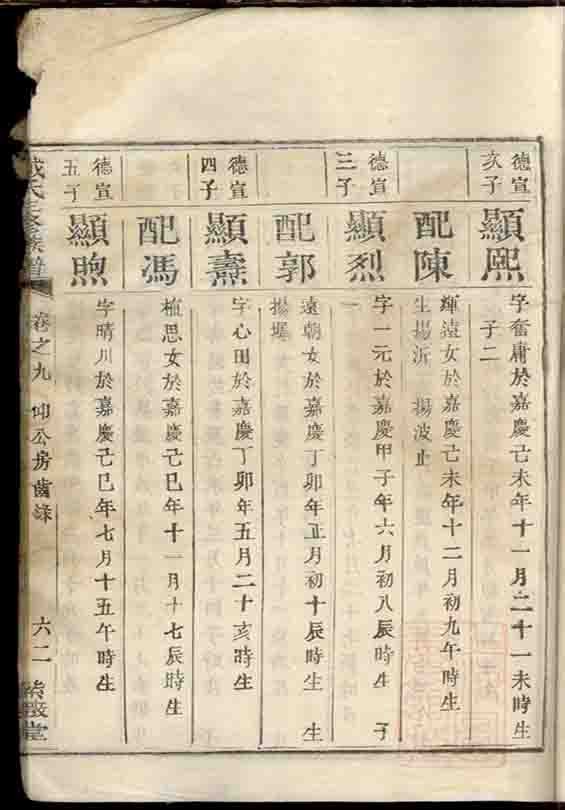 德宣
亥子
顯熙
字奮庸於嘉慶己未年十一月二十一未時生
子二
配陳
輝遠女於嘉慶己未年十二月初九午時生
生揚沂 揚波止
德宣
三子
顯烈
字一元於嘉慶甲子年六月初八辰時生 子
一
配郭
遠朝女於嘉慶丁卯年正月初十辰時生 生
揚堪
德宣
四子
顯燾
字心田於嘉慶丁卯年五月二十亥時生
配馮
植思女於嘉慶己巳年十一月十七辰時生
德宣
五子
顯煦
字晴川於嘉慶己巳年七月十五午時生
氏 修族譜 卷之九 仰公房齒錄 六二 堂